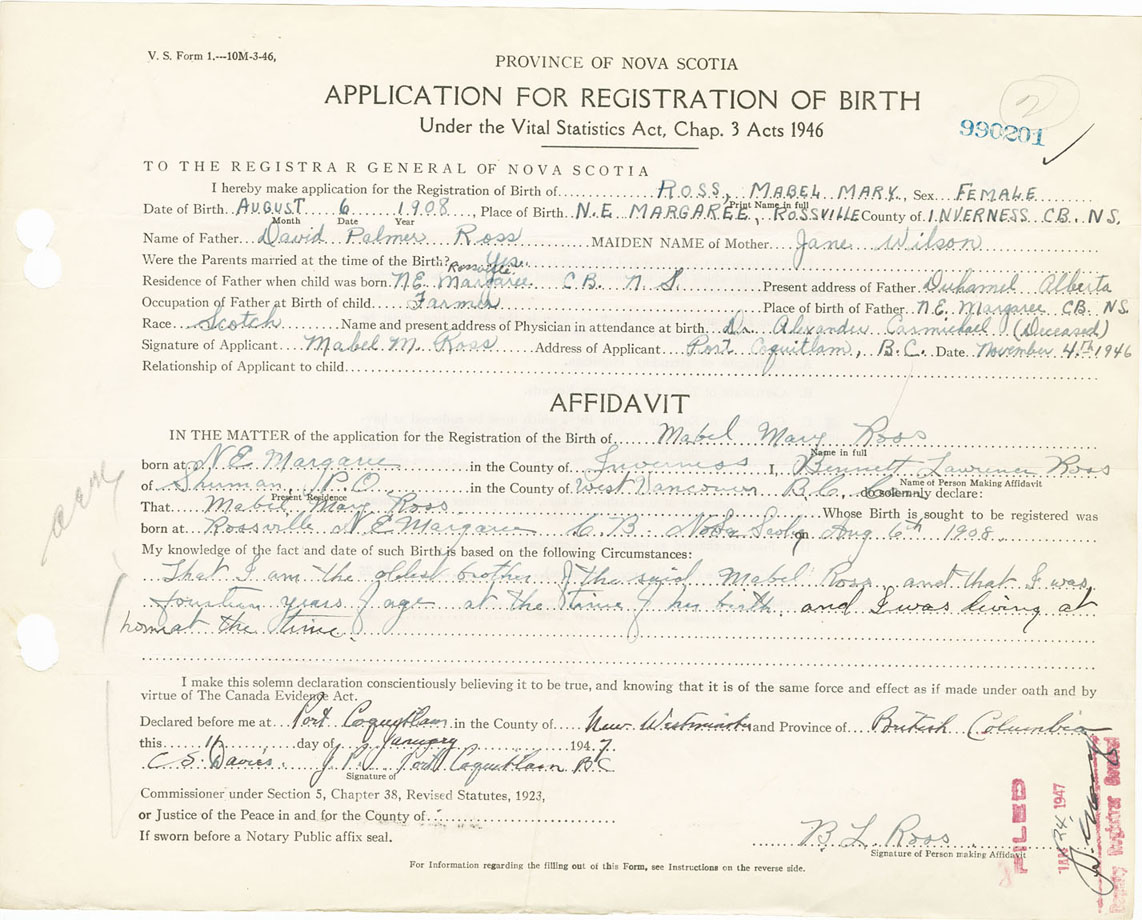 V. S. Form 1.---10M-3-46,
PROVINCE OF NOVA SCOTIA
APPLICATION FOR REGISTRATION OF BIRTH
2
Under the Vital Statistics Act, Chap. 3 Acts 1946
990201
TO THE REGISTRAR GENERAL OF NOVA SCOTIA
I hereby make application for the Registration of Birth of ROSS, MABEL MARY. Sex FEMALE
Print Name in full
Date of Birth AUGUST 6 1908, Place of Birth N.E MARGAREE, ROSSVILLE County of INVERNESS CB. NS.
Month Date Year
Name of Father David Palmer Ross MAIDEN NAME of Mother Jane Wilson
Were the Parents married at the time of the Birth? Yes.
Rossville
Residence of Father when child was born N.E. Margaree C.B. N.S. Present address of Father Duhamel Alberta
Occupation of Father at Birth of child Farmer Place of birth of Father N.E. Margaree CB. NS.
Race Scotch Name and present address of Physician in attendance at birth Dr. Alexander Carmichael (Deceased)
Signature of Applicant Mabel M. Ross Address of Applicant Port Coquitlam, B.C. Date November 4th 1946
Relationship of Applicant to child
AFFIDAVIT
IN THE MATTER of the application for the Registration of the Birth of Mabel Mary Ross
Name in full
born at N E Margaree in the County of Inverness I, Bennett Lawrence Ross
Name of Person Making Affidavit
of Sherman P.O in the County of West Vancouver B.C. do solemnly declare:
Present Residence
That Mabel Mary Ross Whose Birth is sought to be registered was
born at Rossville N E Margaree C B Nova Scotia on Aug 6th 1908.
My knowledge of the fact and date of such Birth is based on the following Circumstances:
That I am the oldest brother of the said Mabel Ross and that I was
fourteen years of age at the time of her birth and I was living at
hom at the time.
I make this solemn declaration conscientiously believing it to be true, and knowing that it is of the same force and effect as if made under oath and by
virtue of The Canada Evidence Act.
Declared before me at Port Coquitlam in the County of New Westminster and Province of British Columbia
this day of January 1947.
C S. Davies. J. P. Port Coquitlam B C
Signature of
Commissioner under Section 5, Chapter 38, Revised Statutes, 1923,
or Justice of the Peace in and for the County of
If sworn before a Notary Public affix seal.
B L Ross
Signature of Person making Affidavit
For Information regarding the filling out of this Form, see Instructions on the reverse side.
FILED
JAN 24 1947
Deputy Registrar General